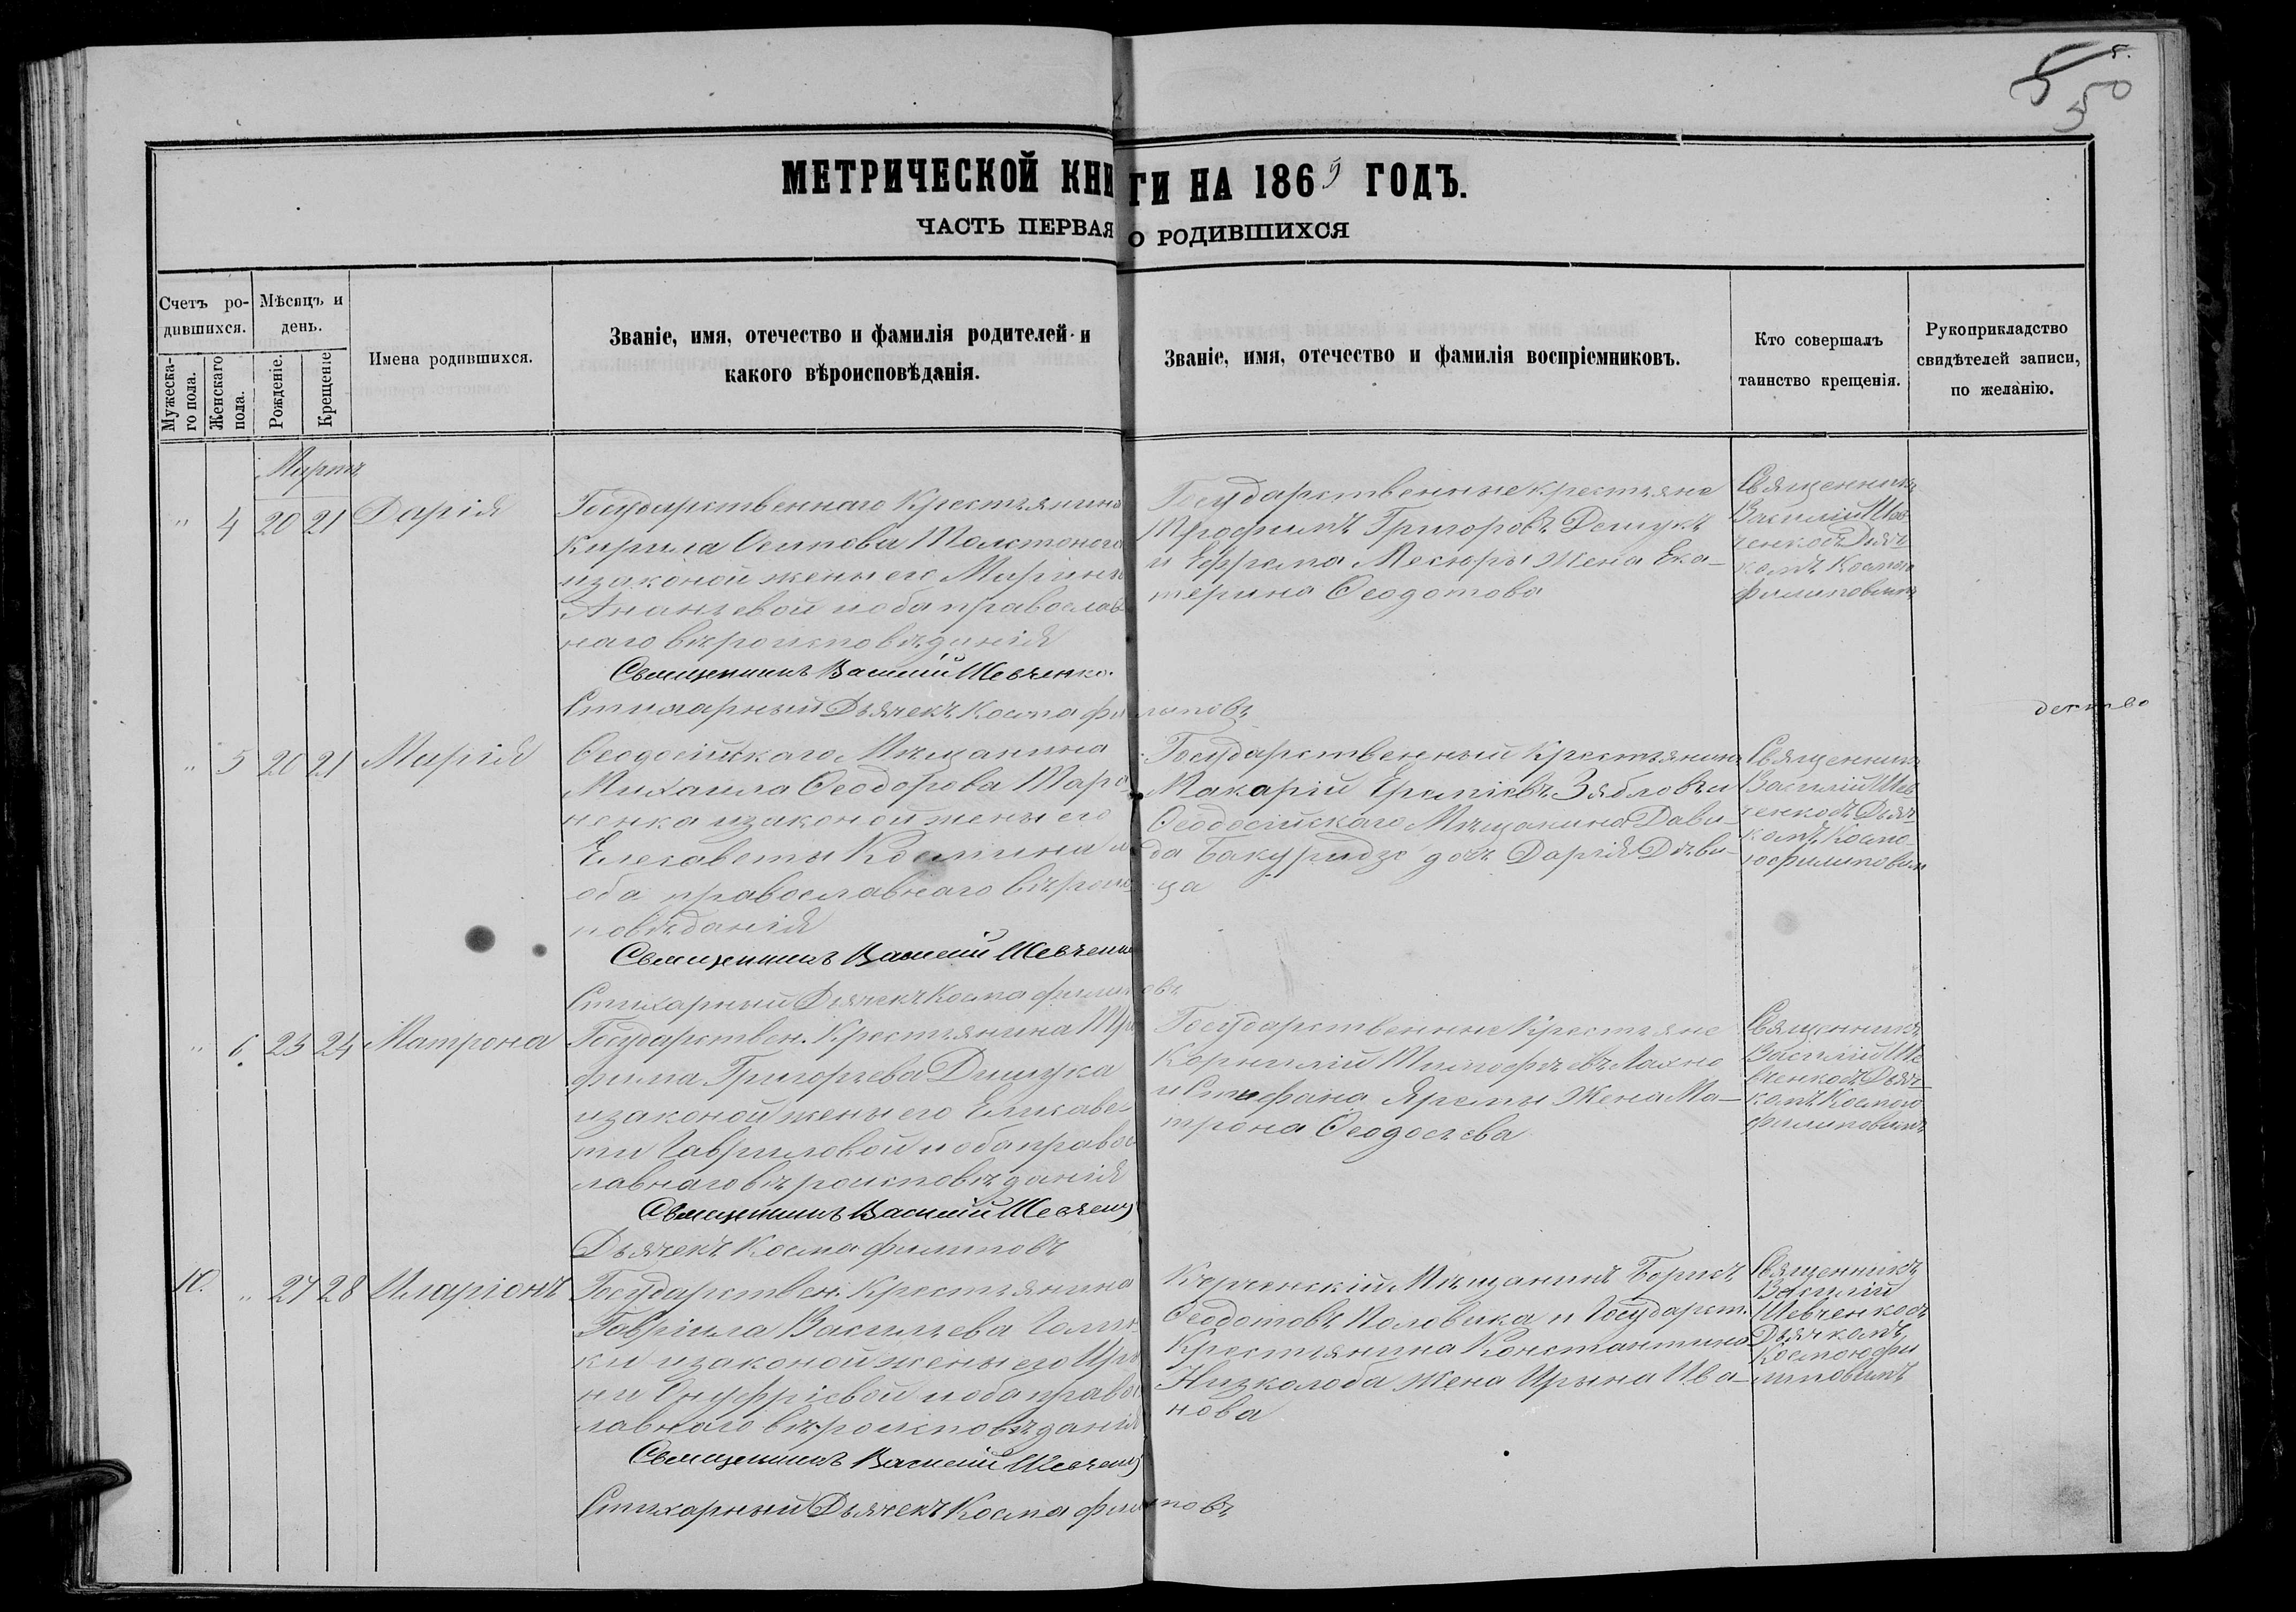 5
50
МЕТРИЧЕСКОЙ КНИГИ НА 1865 ГОДЪ.
ЧАСТЬ ПЕРВАЯ О РОДИВШИХСЯ
Счетъ ро-
дившихся.
Мужеска-
го пола.
Женскаго
пола.
Мѣсяцъ и
день.
Рожденіе.
Крещеніе
Имена родившихся.
Званіе, имя, отечество и фамилія родителей и
какого вѣроисповѣданія.
Званіе, имя, отечество и фамилія воспріемниковъ.
Кто совершалъ
таинство крещенія.
Рукоприкладство
свидѣтелей записи,
по желанію.
Мартъ
" 4 20 21 Дарія
Государственнаго Крестьянина
Кирила Осипова Толстоного
и законой жены его Марины
Ананьевой и оба православ
наго вѣроисповѣданія
Священникъ Василій Шевченко.
Стихарный Дьячекъ Косма Филиповъ
Государственные крестьяне
Трофимъ Григоровъ Дещукъ
и Ефрема Месюры Жена Ека-
терина Ѳеодотова
Священникъ
Василій Шев
ченко съ Дьяч
комъ Космою
Филиповымъ
" 5 20 21 Марія
Ѳеодосійскаго Мѣщанина
Михаила Ѳеодорова Тара
ненка и законой жены его
Елесаветы Космина и
оба православнаго вѣроис
повѣданія
Священникъ Василій Шевченко
Стихарный Дьячекъ Косма Филиповъ
Государственный Крестьянинъ
Макарій Еремієвъ Зябловъ и
Ѳеодосійскаго Мѣщанина Дави-
да Бакуридзо дочь Дарія Дѣви-
ца
Священникъ
Василій Шев
ченко съ Дьяч
комъ Космо
ю Филиповым
" 6. 23 24 Матрона
Государствен. Крестьянина Тро
фима Григорьева Дещука
и законой жены его Елисаве
ти Гавриловой и оба правос
лавнаго вѣроисповѣданія
Священникъ Василій Шевченко
Дьячекъ Косма Филиповъ
Государственные Крестьяне
Корнилій Тимофѣевъ Лахно
и Стефана Яремы Жена Ма-
трона Ѳеодосьева
Священникъ
Василій Ше
вченко съ Дьяч
комъ Космою
Филиповымъ
10. " 27 28 Иларіонъ
Государствен. Крестьянина
Гавріила Васильева
ки и законой жены его Ири
ни Онуфріевой и оба правос
лавнаго вѣроисповѣданія
Священникъ Василій Шевченко
Стихарный Дьячекъ Косма Филиповъ
Керченскій Мѣщанинъ Борисъ
Ѳеодотовъ Половика и Государст.
Крестьянина Константина
Низколоба Жена Ирына Ива-
нова
Священникъ
Василій
Шевченко съ
Дьячкомъ
Космою Фи
липовымъ